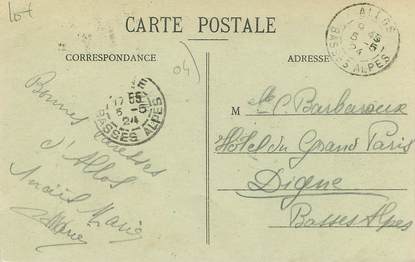 lot
CARTE POSTALE
CORRESPONDANCE
ADRESSE
04)
ALLOS
5-5
24
BSES ALPES
17 55
5-5
24
BASSES ALPES
Bonnes caresses
d'Allos
Marie
M lle C. Barbaroux
Hôtel du Grand Paris
Digne
Basses Alpes